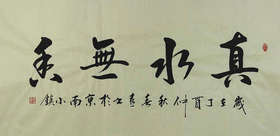 真水無香
歲在丁酉仲秋喜書於京南小鎮